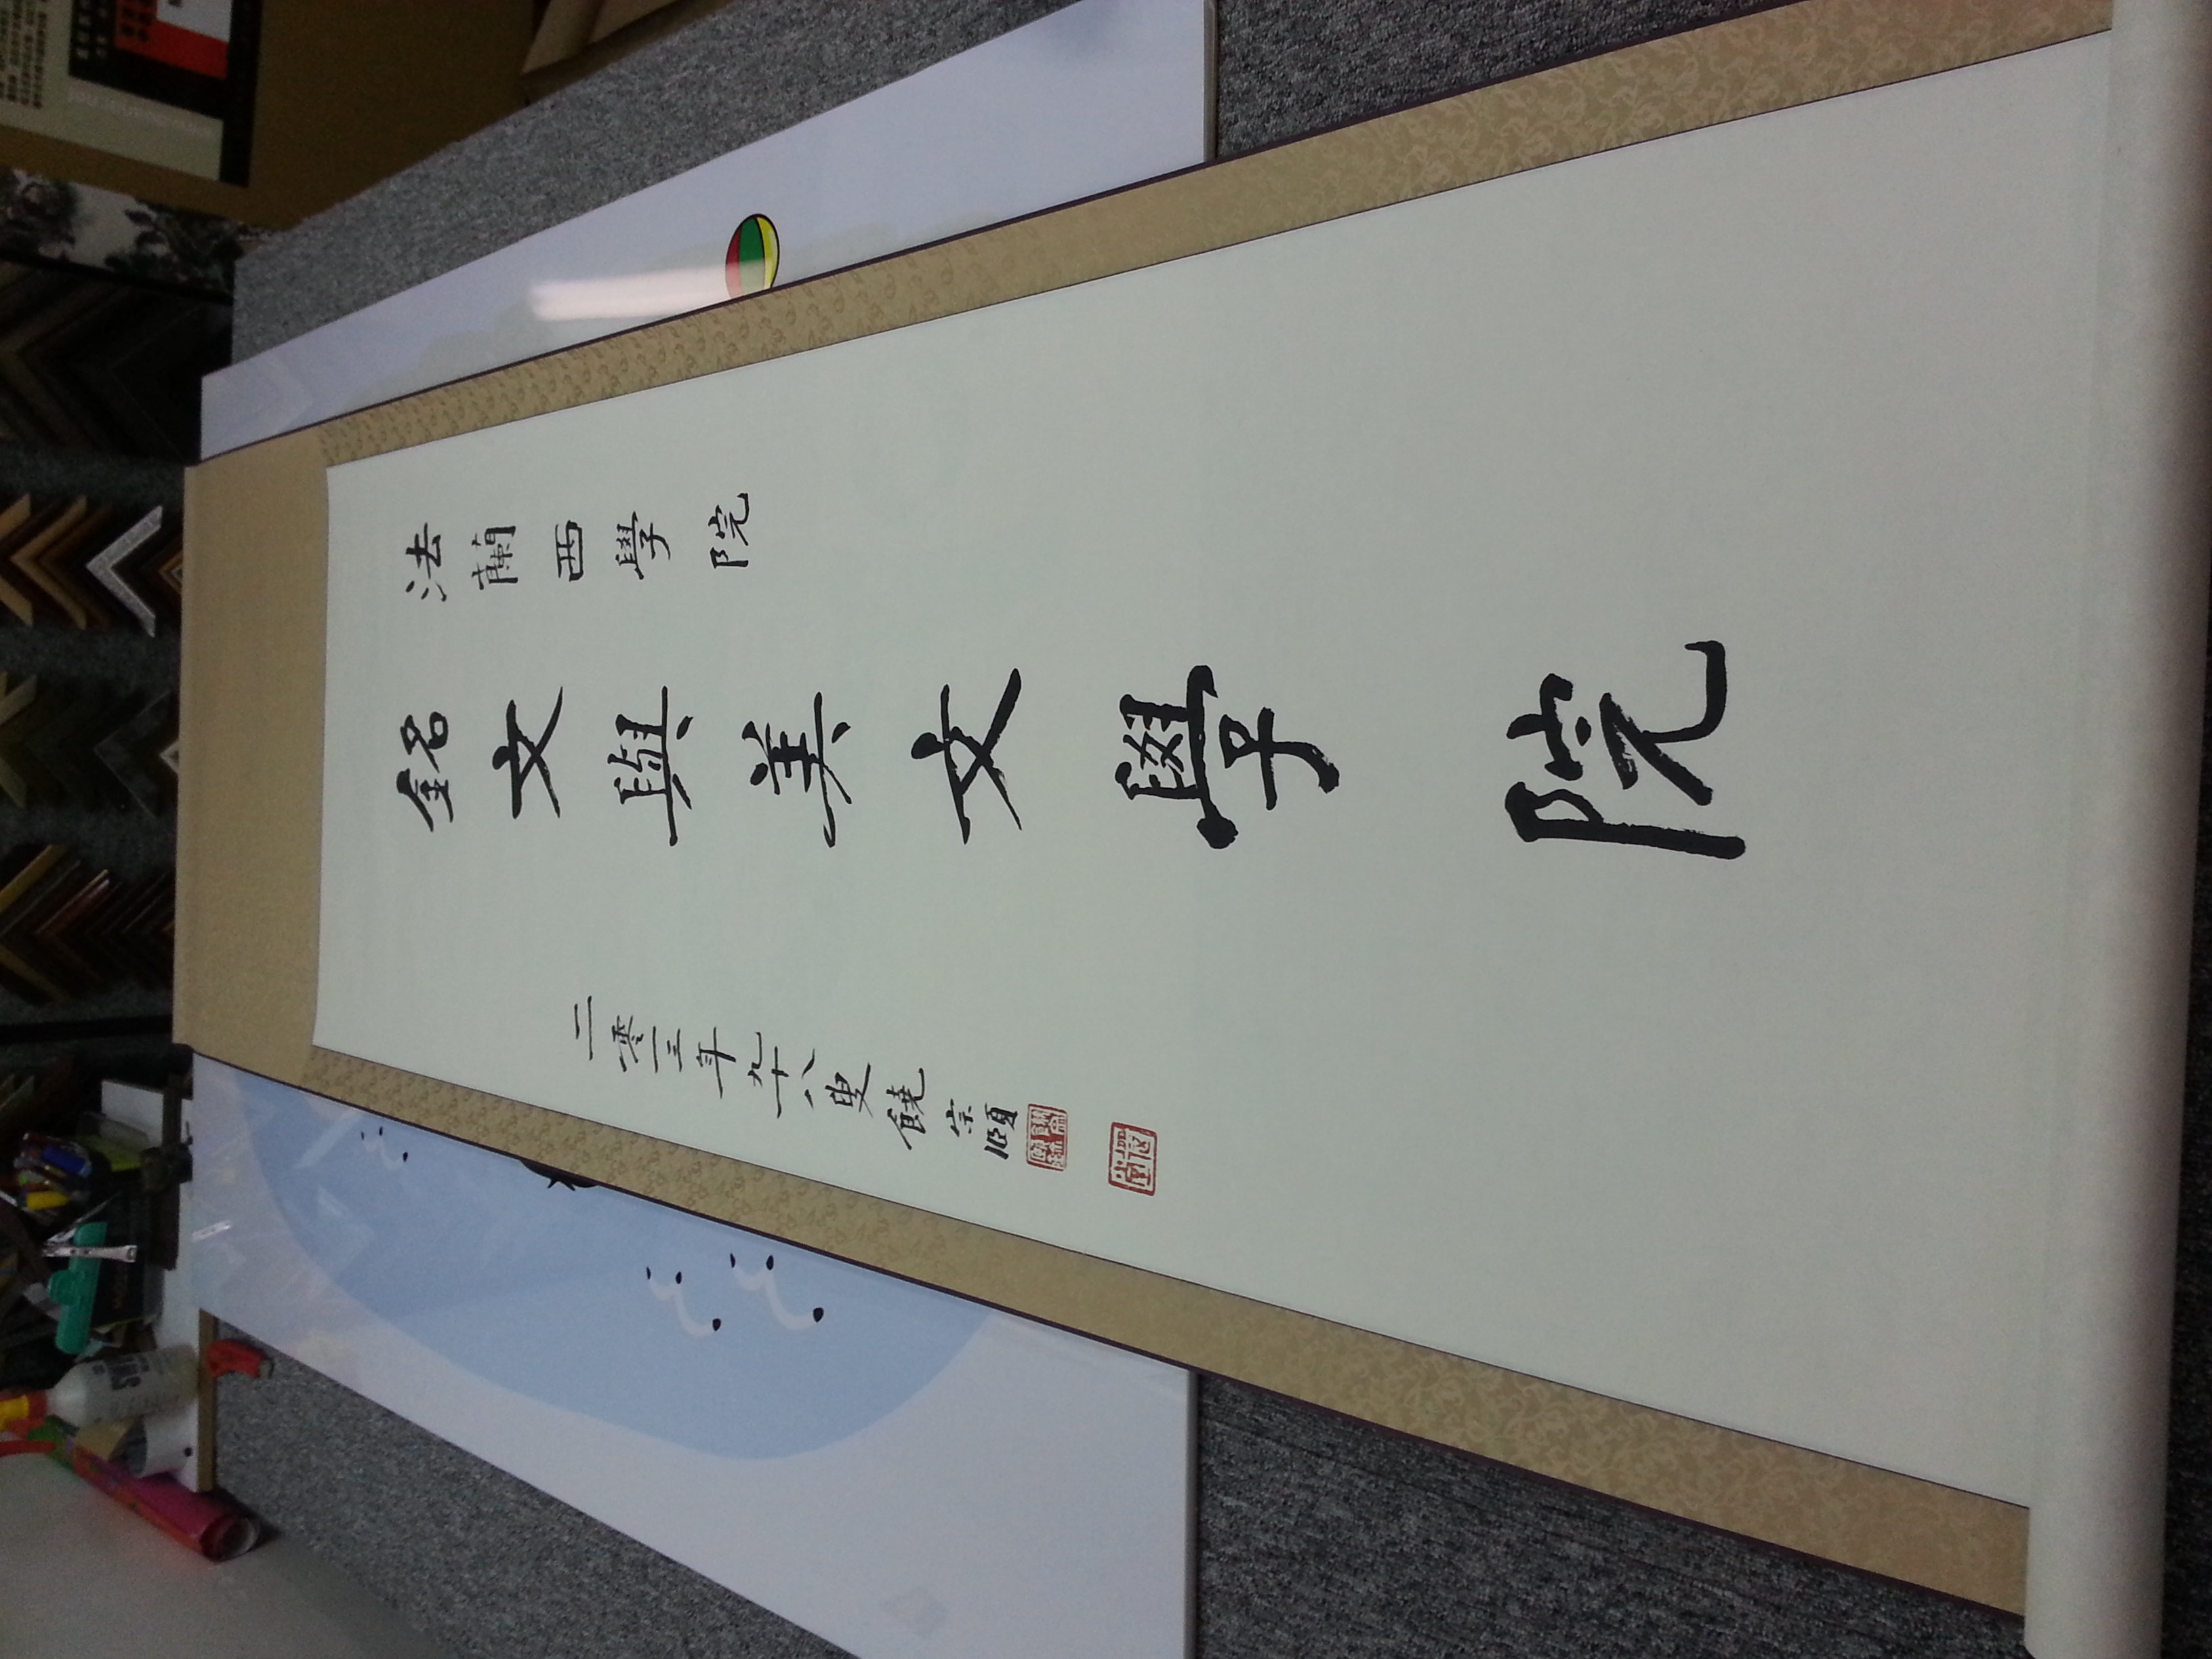 法蘭西學院
銘文與美文學院
二零一三年九十八叟饒宗頤